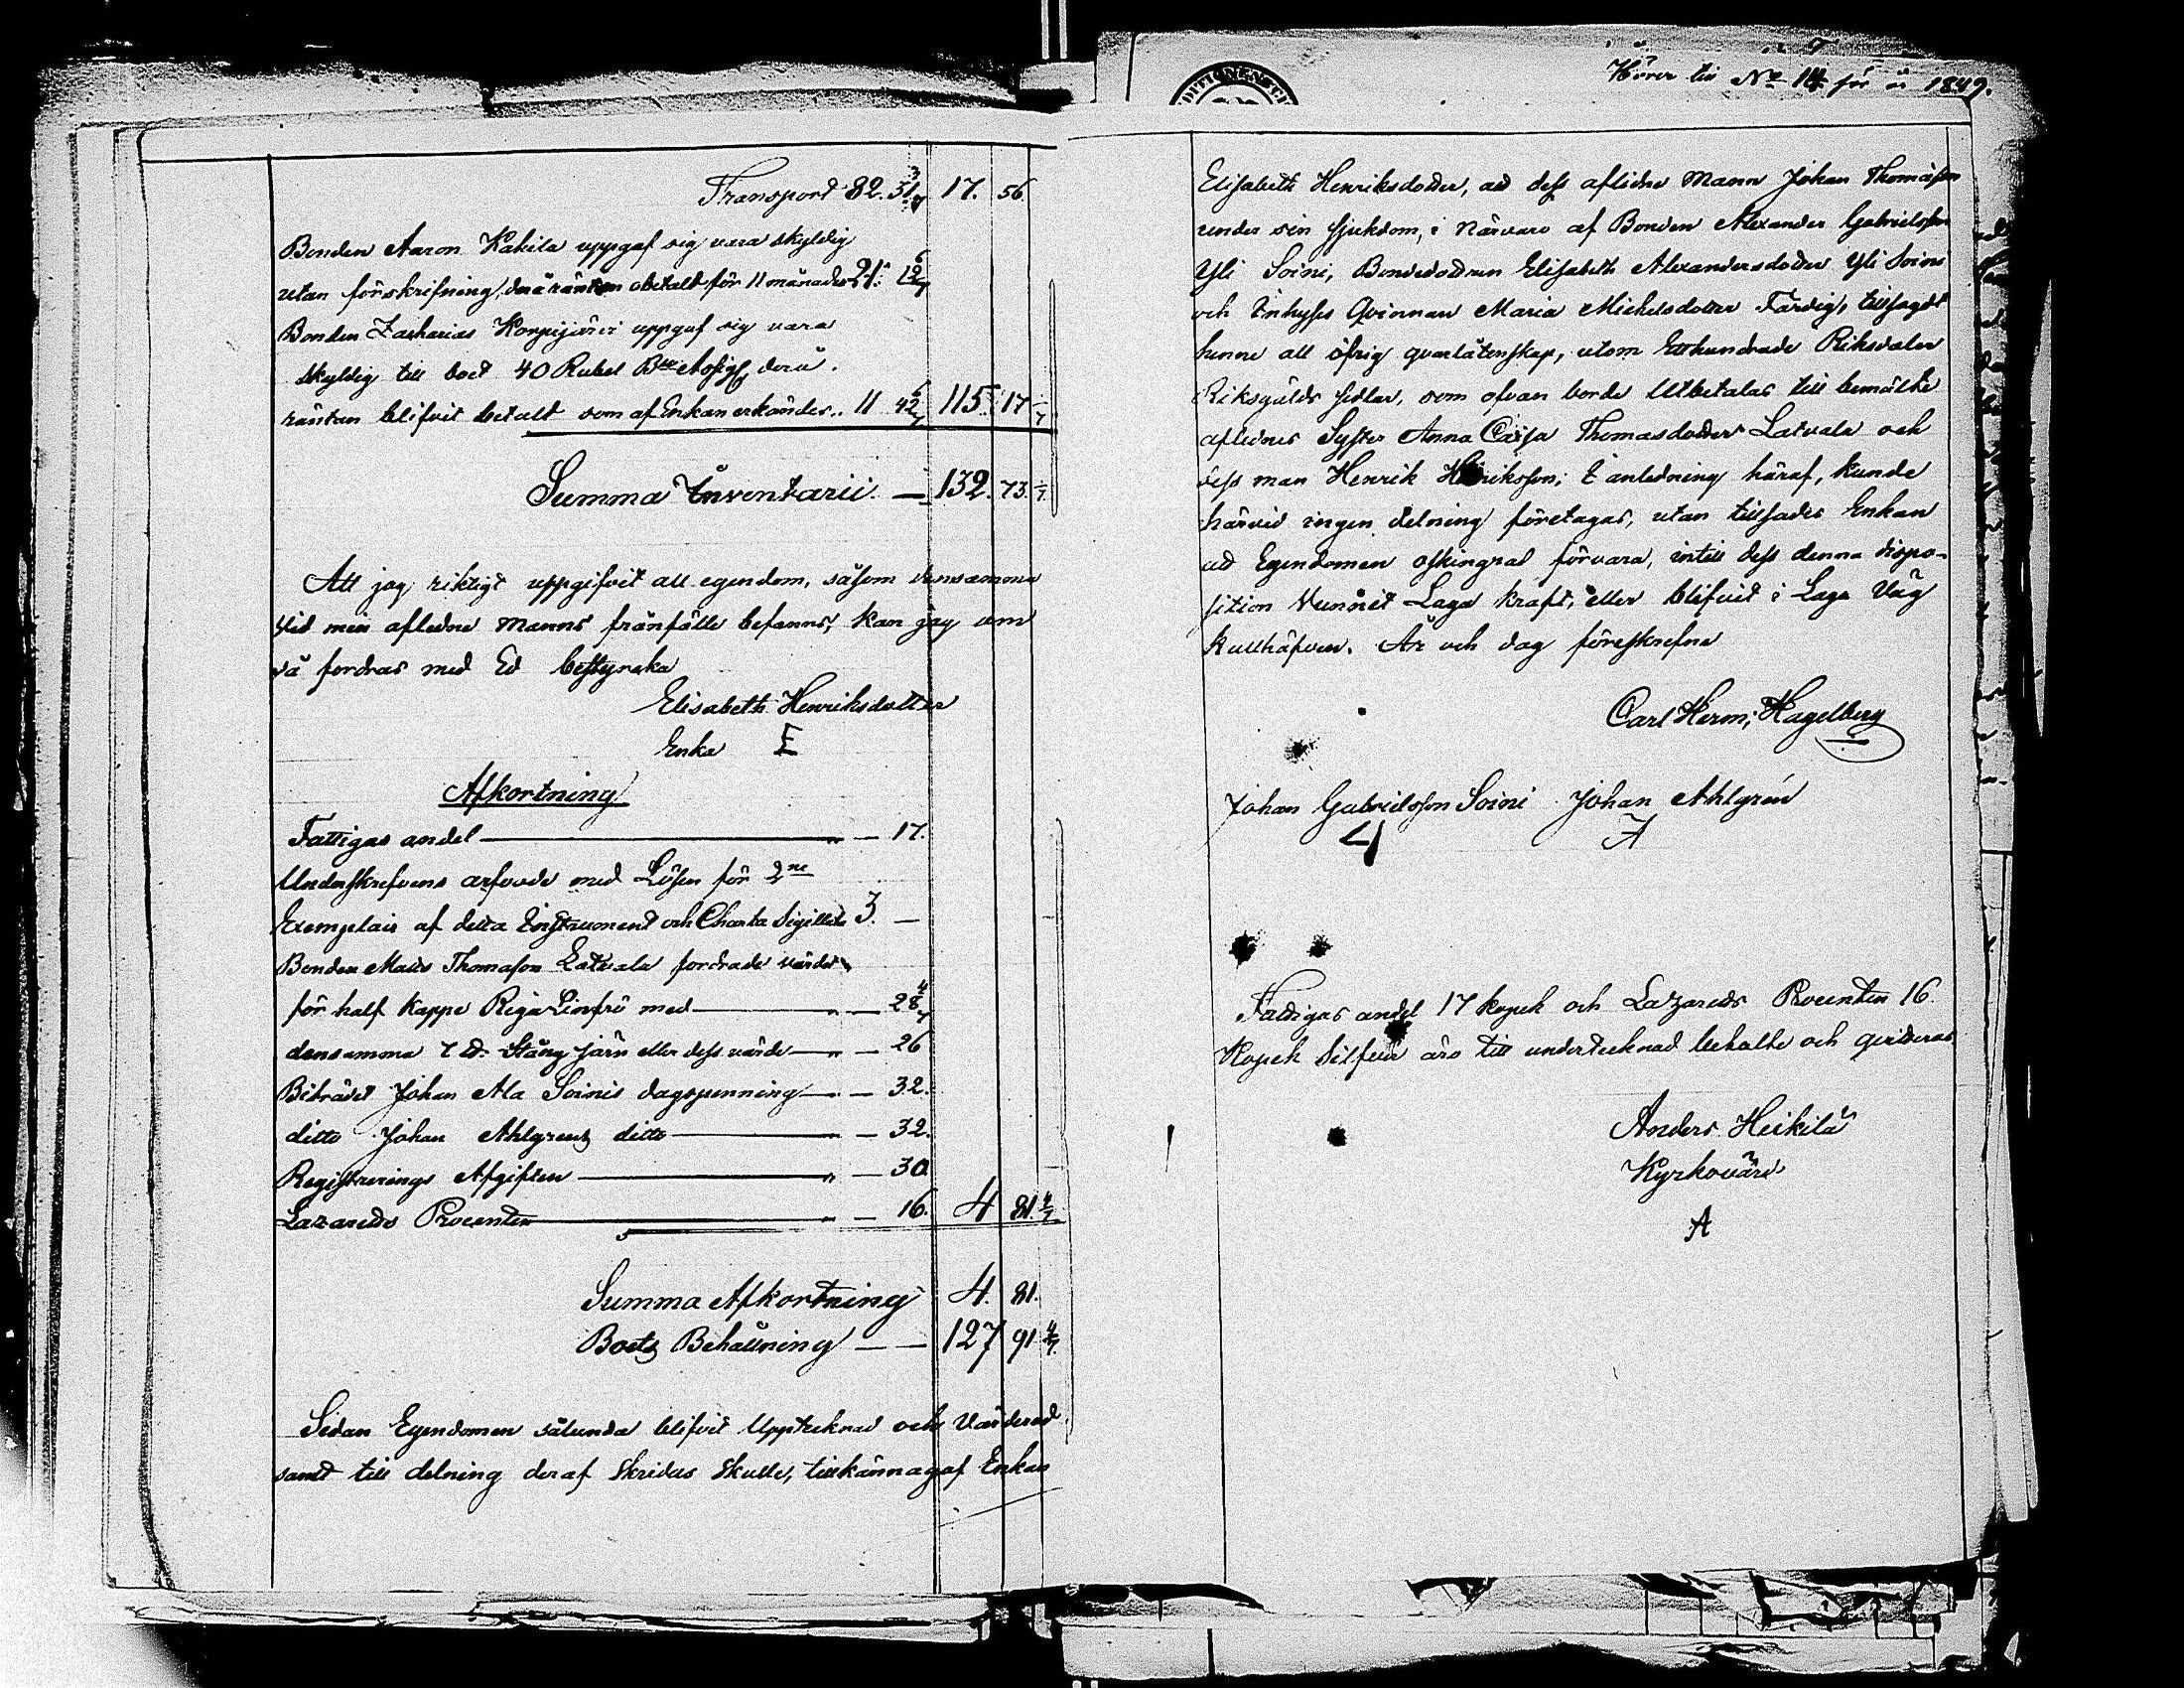 Transport 82. 31 3/7 17. 56.
Bonden Aaron Kakila uppgaf sig vara skyldig
utan förskrifning, derå räntan obetalt för 11 månader 21. 12 6/7
Bonden Zacharias Korpijärvi uppgaf sig vara
skyldig till boet 40 Rubel Bco Assig, derå
räntan blifvit betalt som af Enkan erkändes .. 11 42 6/7 115. 17 1/7
Summa Inventarii — 132. 73. 1/7.
Att jag riktigt uppgifvit all egendom, såsom densamma
vid min aflidne Manns frånfälle befanns, kan jag om
så fordras med Ed bestyrcka
Elisabeth Henriksdotter
Enka E
Afkortning
Fattigas andel — " — 17.
Underskrefvens arfvode med Lösen för 2ne
Exemplair af detta Instrument och Charta Sigillata 3. —
Bonden Matts Thomasson Latvala fordrade värdet
för half Kappe Riga Linfrö med — " — 28 4/7
densamma 7 ℔ Stång järn eller dess värde — " — 26
Biträdet Johan Ala Soinis dagspenning — " — 32.
ditto Johan Ahlgrens ditto — " — 32.
Registrerings Afgiften — " — 30
Lazaretts Procenten — " — 16. 4 81. 4/7
Summa Afkortning 4. 81.
Boets Behållning — — 127 91 4/7.
Sedan Egendomen sålunda blifvit Upptecknad och Värderad
samt till delning deraf skridas skulle, tillkännagaf Enkan
Hörer till No 14 för år 1849.
Elisabeth Henriksdotter, att dess aflidne Mann Johan Thomasson
under sin sjukdom, i närvaro af Bonden Alexander Gabrielsson
Yli Soini, Bondedottren Elisabeth Alexandersdotter Yli Soini
och Inhyses Qvinnan Maria Michelsdotter Färdig, tillsagdt
henne all öfrig qvarlåtenskap, utom Etthundrade Riksdaler
Riksgälds sedlar, som ofvan borde Utbetalas till bemälte
aflidnes Syster Anna Caisa Thomasdotter Latvala och
dess man Henrik Henriksson; I anledning häraf, kunde
härvid ingen delning företagas, utan tillsades Enkan
att Egendomen oskingrad förvara, intill dess denna dispo-
sition Vunnit Laga kraft, eller blifvit i Laga Väg
kullhäfven. År och dag föreskrefne
Carl Herm; Hagelberg
Johan Gabrielsson Soini Johan Ahlgrén
A
Fattigas andel 17 kopek och Lazaretts Procenten 16
Kopek Silfver äro till undertecknad betalte och qvitteras
Anders Heikilä
Kyrkovärd
A